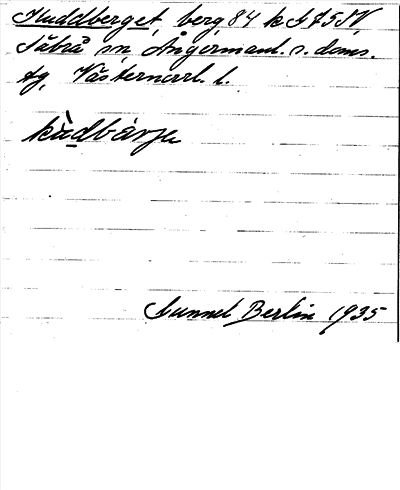 Kuddberget, berg 84 k f 75 IV,
Säbrå sn, Ångermanl. s. doms.
tg, Västernorrl. l.
kùdbárje
Gunnel Berlin 1935